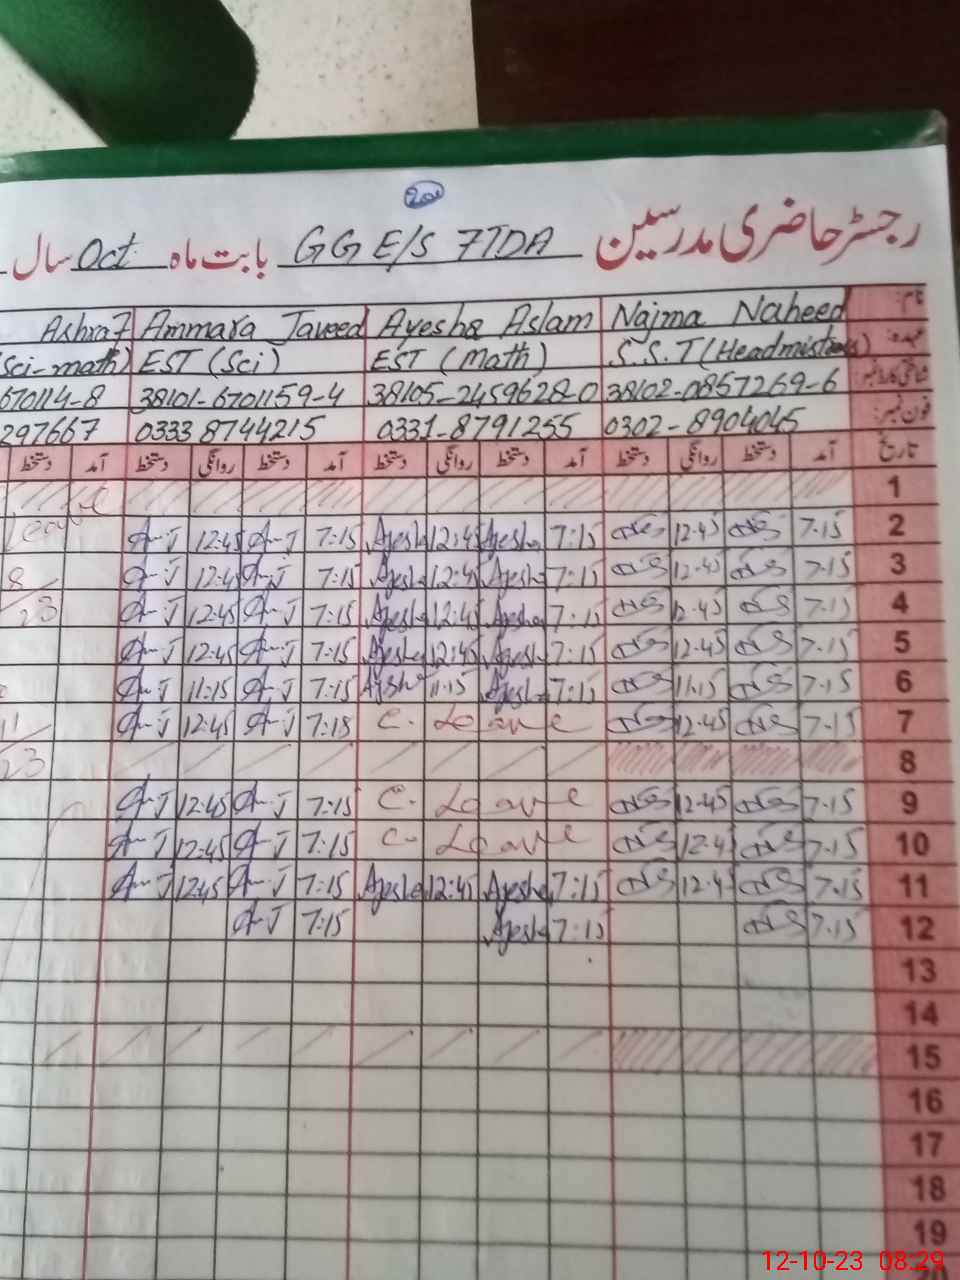 رجسٹر حاضری مدرسین GGE/S 7TDA بابت ماہ Oct سال
نام: Najma Naheed Ayesha Aslam Ammara Javeed Ashraf
عہدہ: S.S.T (Headmistress) EST (Math) EST (Sci) (Sci-math)
شناختی کارڈ نمبر: 38102-0857269-6 38105-2459628-0 38101-6701159-4 670114-8
فون نمبر: 0302-8904045 0331-8791255 0333 8744215 297667
تاریخ آمد دستخط روانگی دستخط آمد دستخط روانگی دستخط آمد دستخط روانگی دستخط آمد دستخط
1
2 7.15 NS 12.45 NS 7:15 Ayesha 12:45 Ayesha 7:15 A-J 12:45 A-J Leave
3 7.15 NS 12.45 NS 7:15 Ayesha 12:45 Ayesha 7:15 A-J 12:45 A-J 8
4 7.15 NS 12.45 NS 7:15 Ayesha 12:45 Ayesha 7:15 A-J 12:45 A-J 23
5 7.15 NS 12.45 NS 7:15 Ayesha 12:45 Ayesha 7:15 A-J 12:45 A-J
6 7.15 NS 11.15 NS 7:15 Ayesha 11:15 Ayesha 7:15 A-J 11:15 A-J
7 7.15 NS 12.45 NS C. Leave 7:15 A-J 12:45 A-J 11
8 23
9 7.15 NS 12.45 NS C. Leave 7:15 A-J 12:45 A-J
10 7.15 NS 12.45 NS C- Leave 7:15 A-J 12:45 A-J
11 7.15 NS 12.45 NS 7:15 Ayesha 12:45 Ayesha 7:15 A-J 12:45 A-J
12 7.15 NS 7:15 Ayesha 7:15 A-J
13
14
15
16
17
18
19
12-10-23 08:29